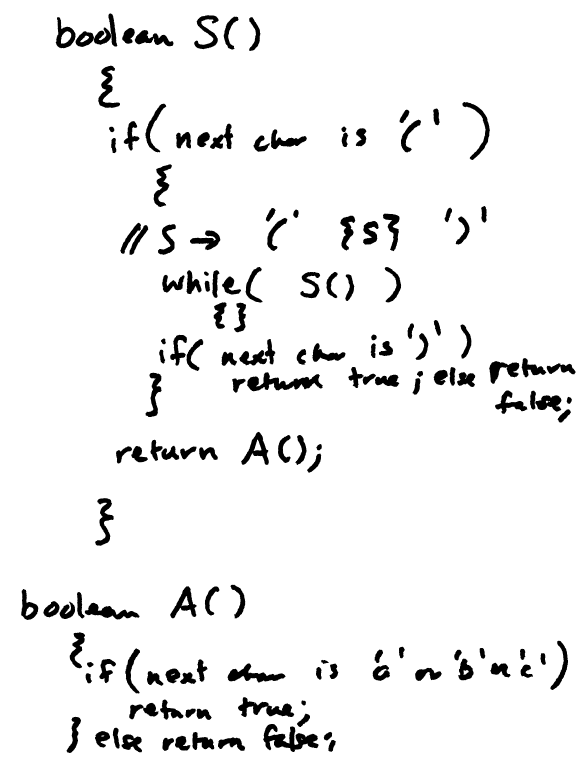 boolean S()
{
if( next char is '(' )
{
// S → '(' {S} ')'
while( S() )
{}
if( next char is ')' )
return true; else return
} false;
return A();
}
boolean A()
{
if (next char is 'a' or 'b' or 'c')
return true;
} else return false;